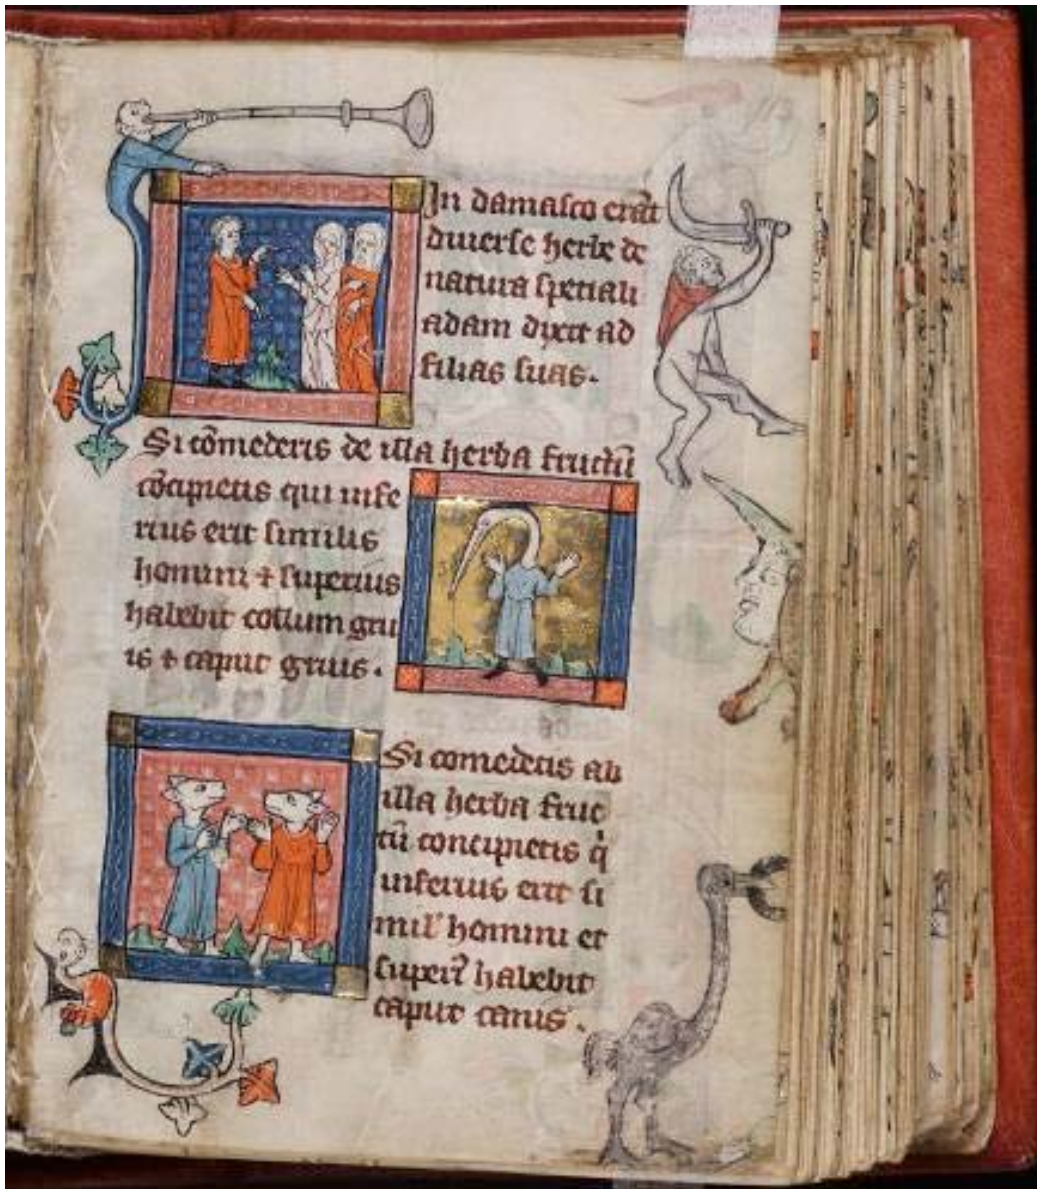 In damasco erāt
diuerse herbe de
natura speciali
adam dixit ad
filias suas.
Si cōmederis de illa herba fructū
cōcipietis qui infe
rius erit similis
homini ⁊ superius
habebit collum gru
is ⁊ caput gruis.
Si comedetis ab
illa herba fruc
tū concipietis q̇
inferius erit si
mil' homini et
superꝰ habebit
caput canis.